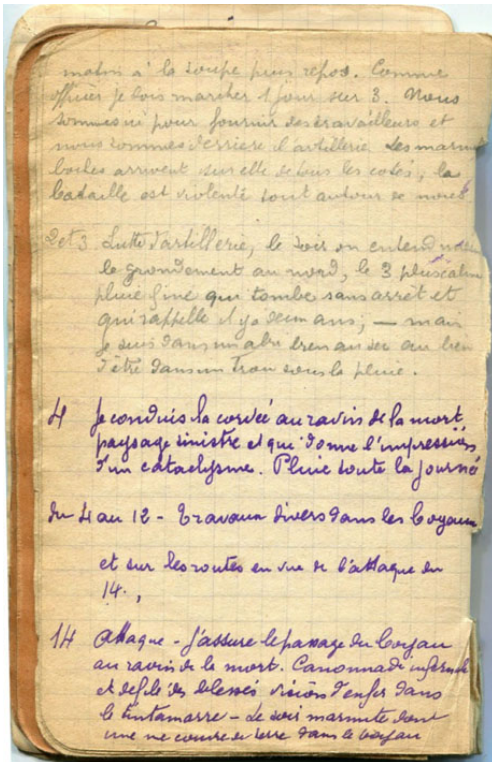 matin à la soupe puis repos. Comme
officier je dois marcher 1 jour sur 3. Nous
sommes ici pour fournir des travailleurs et
nous sommes derrière l'artillerie. Les marmites
boches arrivent sur elle de tous les cotés, la
bataille est violente tout autour de nous
2 et 3 Lutte d'artillerie, le soir on entend
le grondement au nord, le 3 plus calme
pluie fine qui tombe sans arrêt et
qui rappelle il y a deux ans; — mais
je suis dans un abri bien au sec au lieu
d'être dans un trou sous la pluie.
4 Je conduis la corvée au ravin de la mort
paysage sinistre et qui donne l'impression
d'un cataclysme. Pluie toute la journée
du 4 au 12 - Travaux divers dans les boyaux
et sur les routes en vue de l'attaque du
14.,
14 Attaque - j'assure le passage du boyau
au ravin de la mort. Canonnade infernale
et défilé des blessés vision d'enfer dans
le tintamarre - Le soir marmité dont
une me couvre de terre dans le boyau